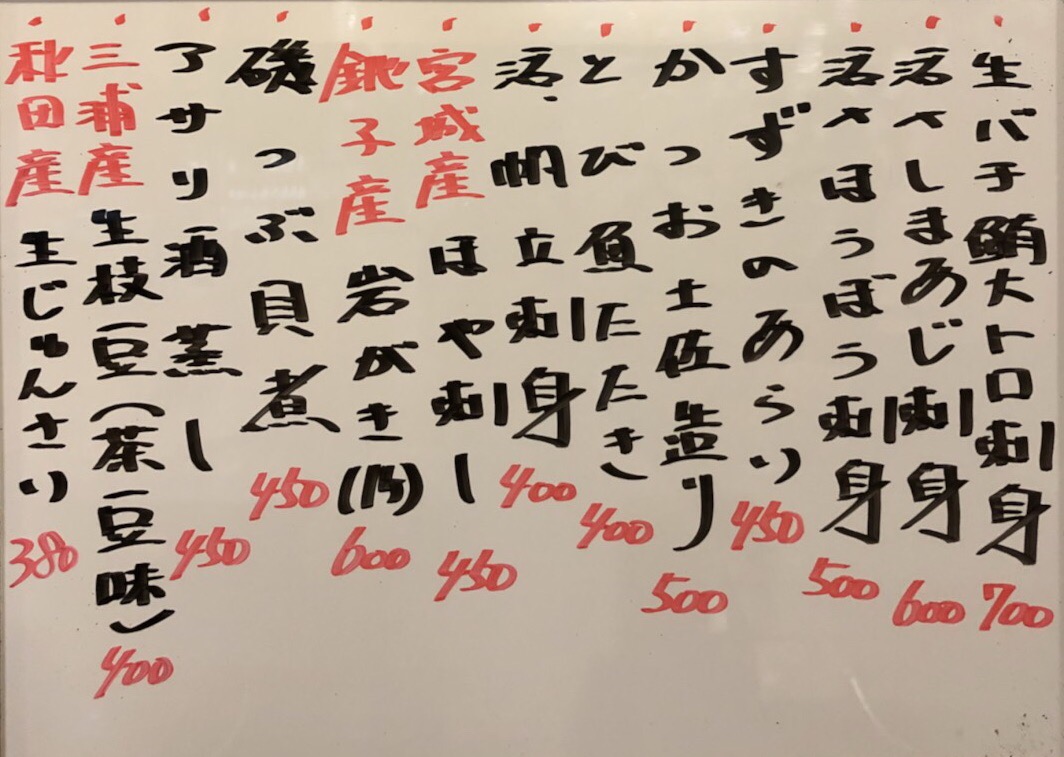 生バチ鮪大トロ刺身 700
活〆しまあじ刺身 600
活〆ほうぼう刺身 500
すずきのあらい 450
かつお土佐造り 500
とび魚たたき 400
活、帆立刺身 400
宮城産 ほや刺し 450
銚子産 岩がき(1ヶ) 600
磯つぶ貝煮 450
アサリ酒蒸し 450
三浦産 生枝豆(茶豆味) 400
秋田産 生じゅんさい 380